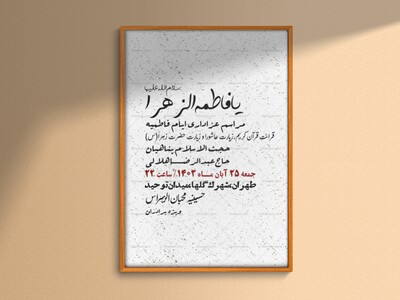 سلام الله علیها
یا فاطمه الزهرا
مراسم عزاداری ایام فاطمیه
قرائت قرآن کریم، زیارت عاشورا و زیارت حضرت زهرا (س)
حجت الاسلام پناهیان
حاج عبدالرضا هلالی
جمعه ۲۵ آبان ماه ۱۴۰۳ / ساعت ۲۲
طهران، شهرک گلها، میدان توحید
حسینیه محبان الزهراس